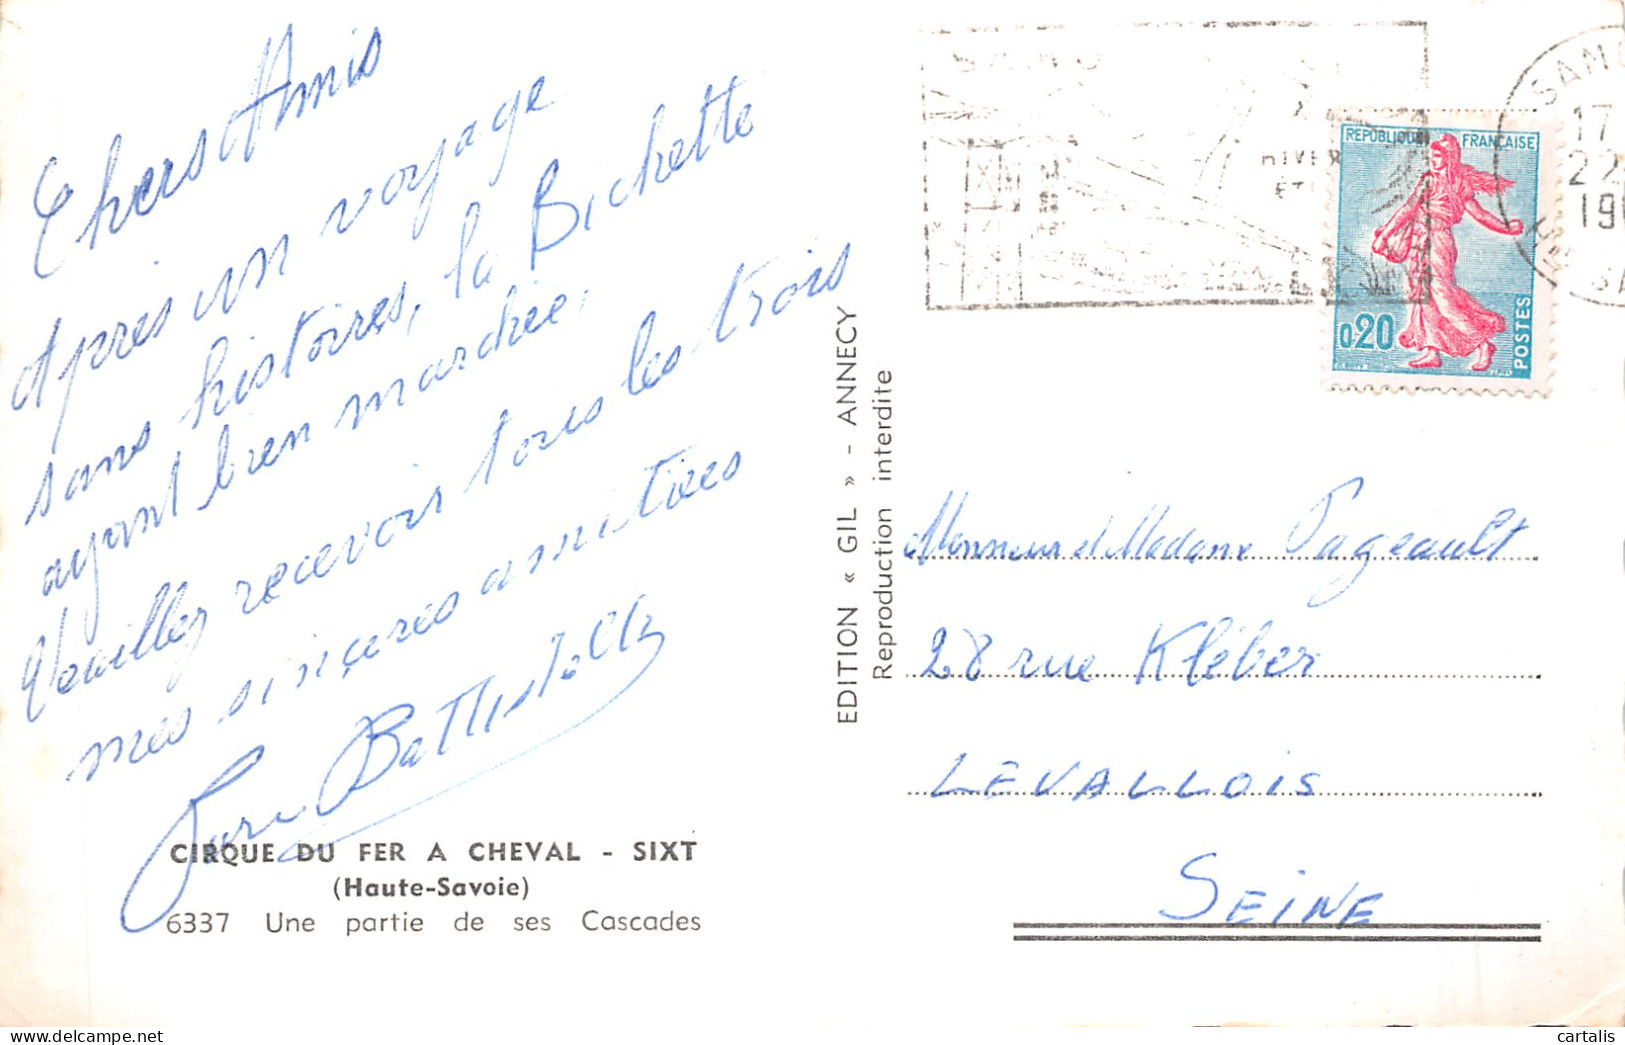 Chers Amis
après un voyage
sans histoires, la Bichette
ayant bien marchée,
Veuillez recevoir tous les trois
mes sincères amitiées
Battistella
CIRQUE DU FER A CHEVAL - SIXT
(Haute-Savoie)
6337 Une partie de ses Cascades
EDITION « GIL » - ANNECY
Reproduction interdite
HIVER
REPUBLIQUE FRANÇAISE
0,20
POSTES
17
22
Monsieur et Madame Pageault
28 rue Kléber
LEVALLOIS
SEINE
cartalis